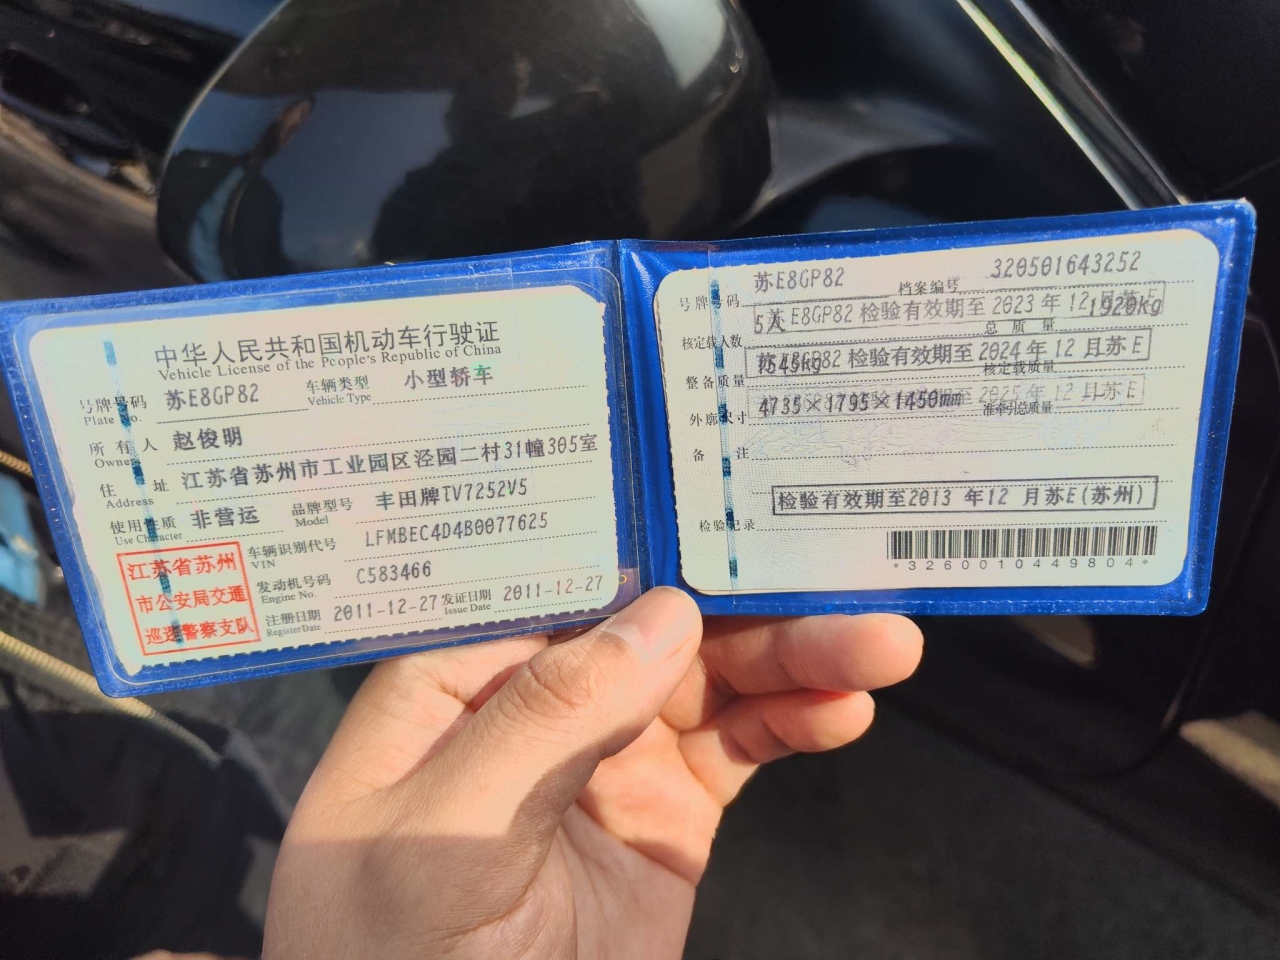 中华人民共和国机动车行驶证
Vehicle License of the People's Republic of China
号牌号码 苏E8GP82 车辆类型 小型轿车
Plate No. Vehicle Type
所有人 赵俊明
Owner
住址 江苏省苏州市工业园区泾园二村31幢305室
Address
使用性质 非营运 品牌型号 丰田牌TV7252V5
Use Character Model
江苏省苏州
市公安局交通
巡逻警察支队
车辆识别代号 LFMBEC4D4B0077625
VIN
发动机号码 C583466
Engine No.
注册日期 2011-12-27 发证日期 2011-12-27
Register Date Issue Date
号牌号码 苏E8GP82 档案编号 320501643252
苏E8GP82 检验有效期至 2023 年 12 月苏E
核定载人数 5人 总质量 1920kg
苏E8GP82 检验有效期至 2024 年 12 月苏E
整备质量 1545kg 核定载质量
检验有效期至 2025 年 12 月苏E
外廓尺寸 4735×1795×1450mm 准牵引总质量
备注
检验有效期至2013 年12 月苏E(苏州)
检验记录
*3260010449804*